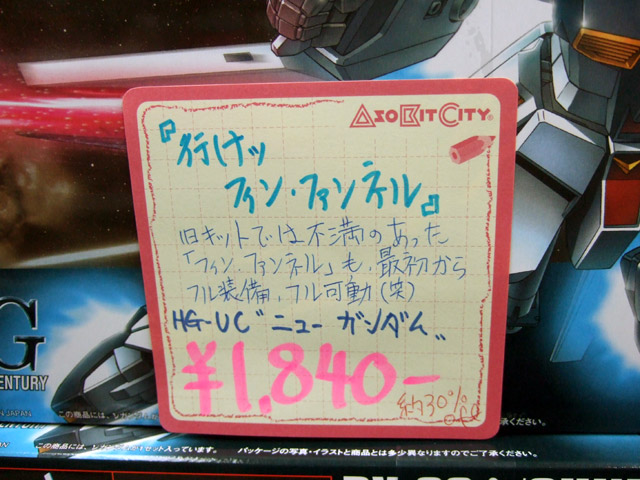 AsoBitCity
『行けッ
フィン・ファンネル』
旧キットでは不満のあった
「フィン・ファンネル」も、最初から
フル装備、フル可動(笑)
HG-UC"ニューガンダム"
¥1,840-
約30%off
G
ENTURY
N JAPAN
この商品には、レガン
承ください。
パッケージの写真・イラストと商品とは多少異なりますのでご了承ください。